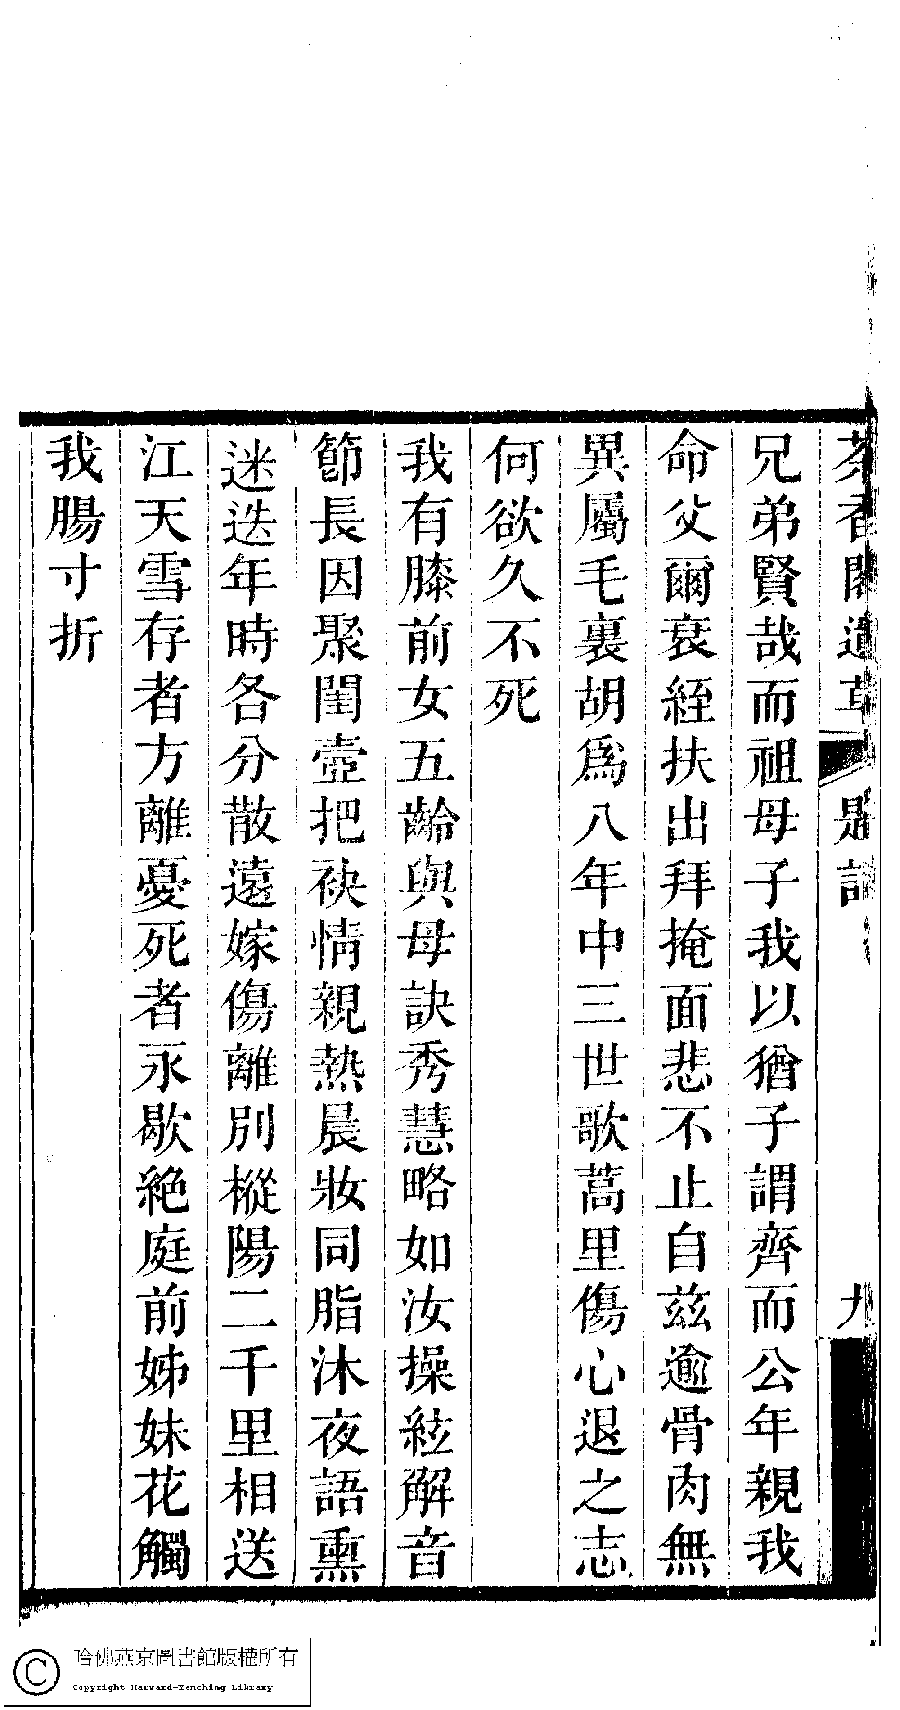 茶香閣遺草 題詞 九
兄弟賢哉而祖母子我以猶子謂齊而公年親我
命父爾衰絰扶出拜掩面悲不止自茲逾骨肉無
異屬毛裏胡為八年中三世歌蒿里傷心退之志
何欲久不死
我有膝前女五齡與母訣秀慧略如汝操絃解音
節長因聚閨壼把袂情親熱晨妝同脂沐夜語熏
迷迭年時各分散遠嫁傷離別樅陽二千里相送
江天雪存者方離憂死者永歇絶庭前姊妹花觸
我腸寸折
哈佛燕京圖書館版權所有
Copyright Harvard-Yenching Library